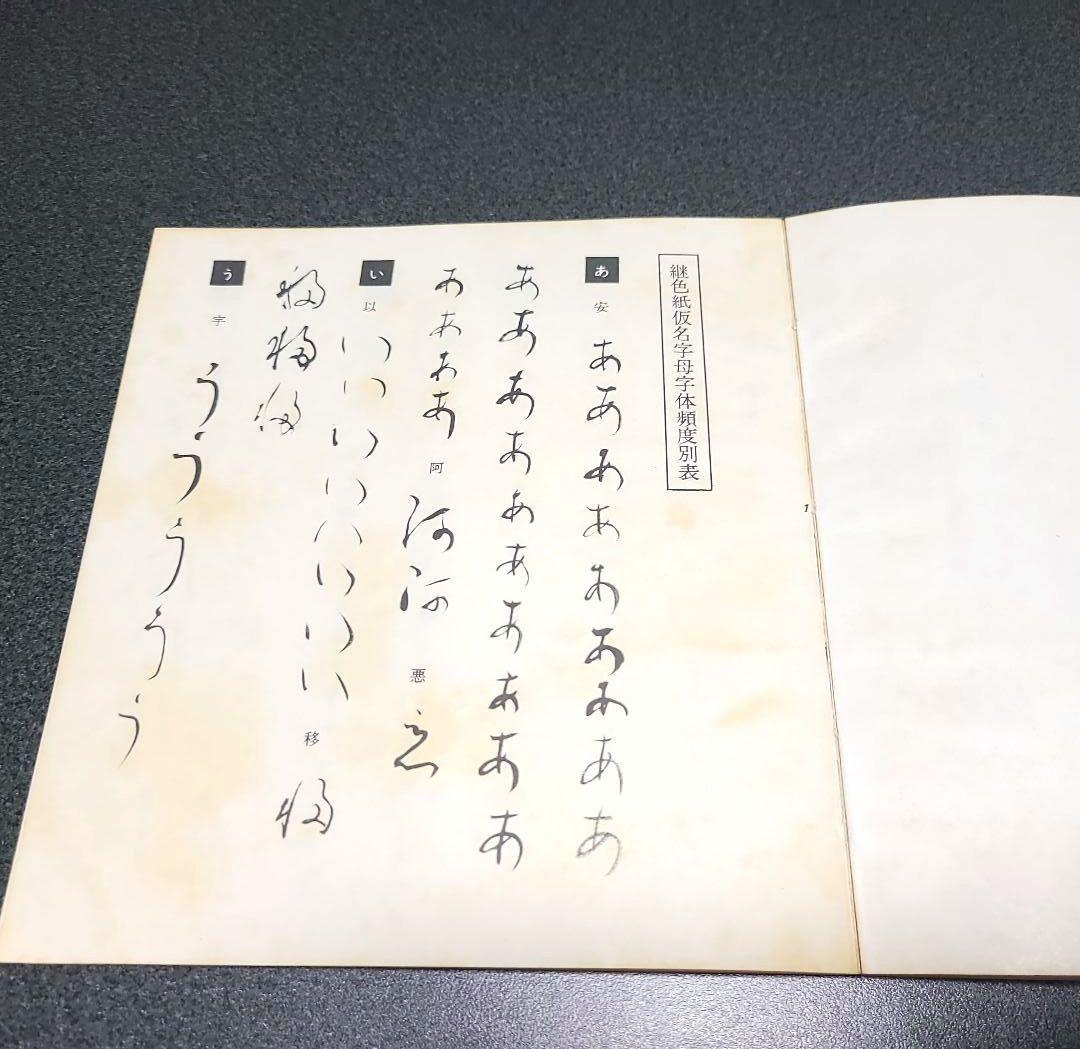 継色紙仮名字母字体頻度別表
あ 安 あああああああああ
ああああああああああ
ああああ 阿 阿阿 悪 悪
い 以 いいいいいいいい 移 移
移移移
う 宇 ううううう
1